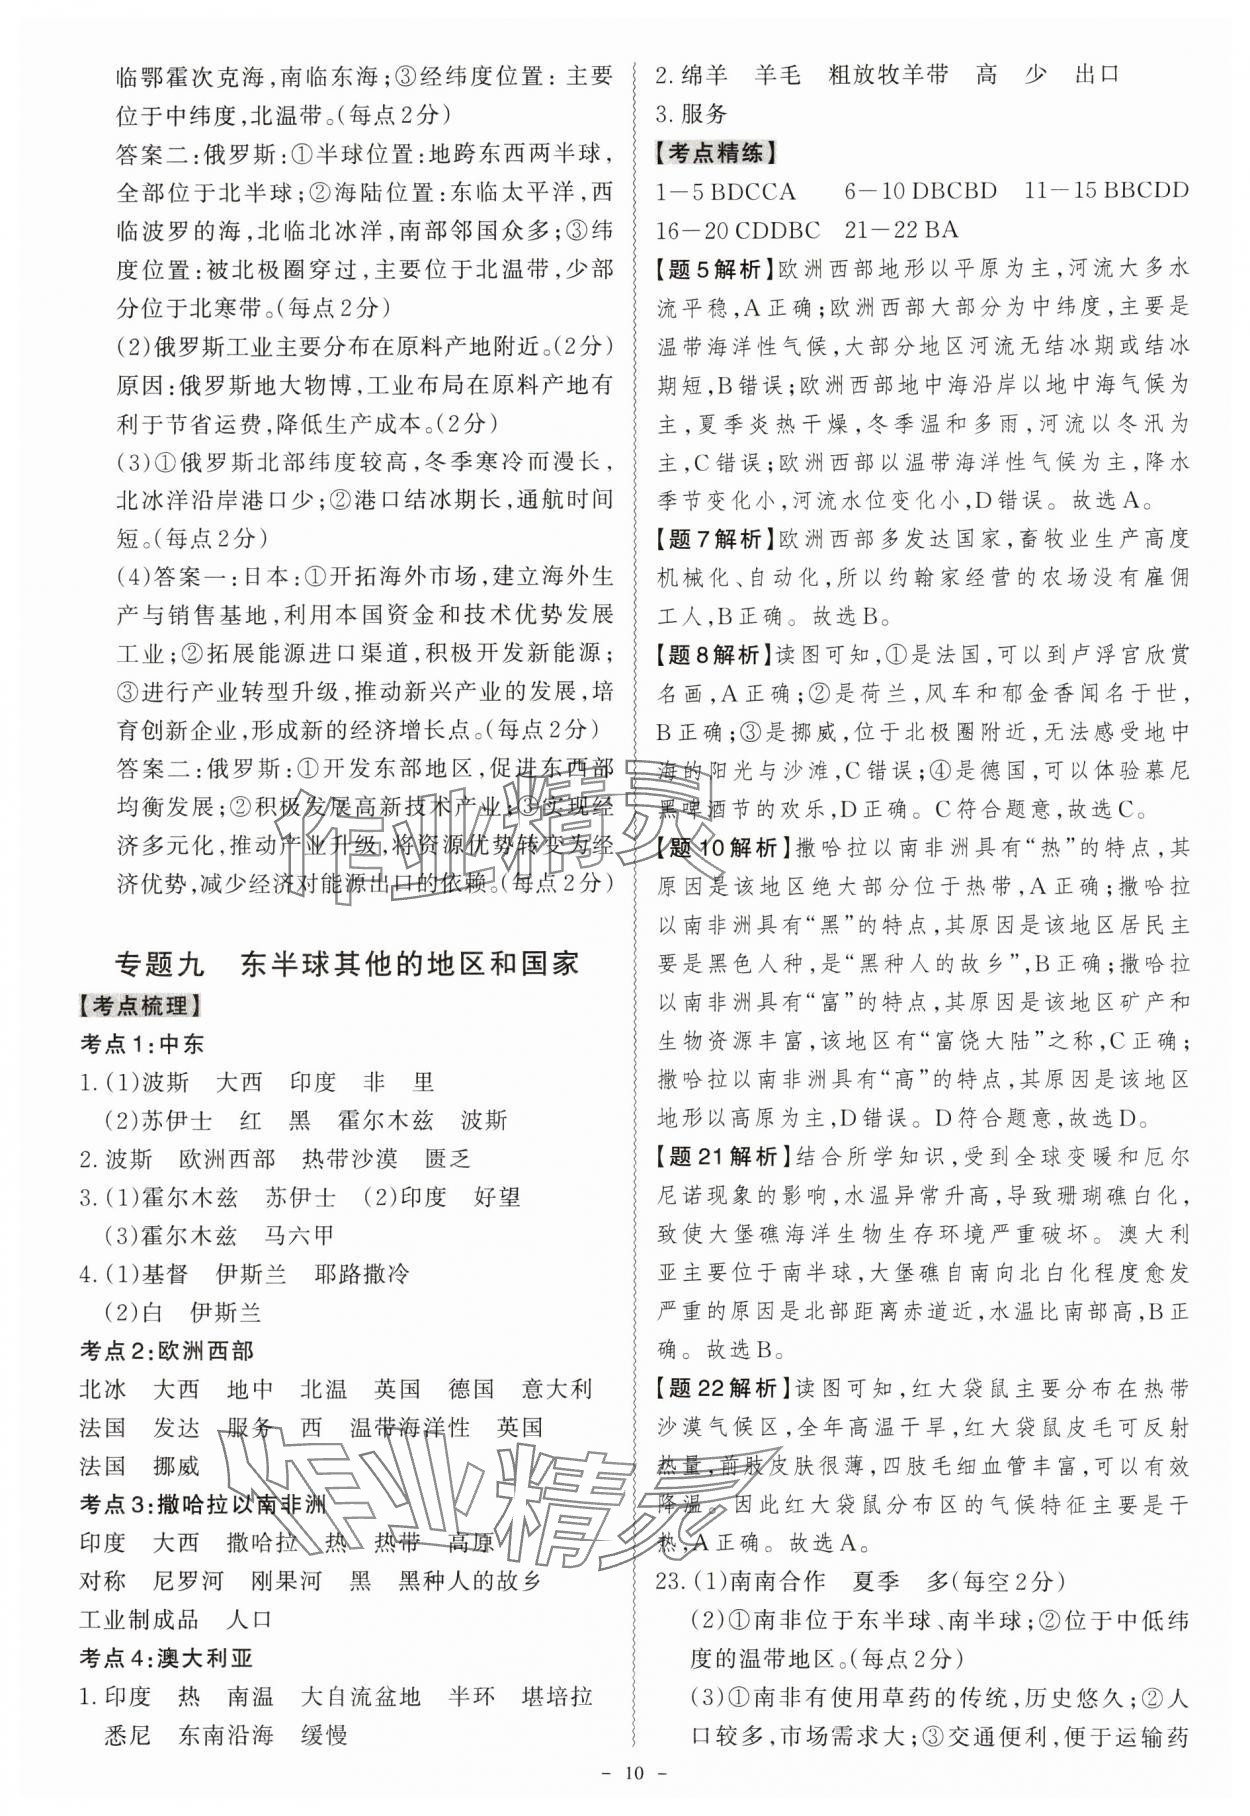 临鄂霍次克海,南临东海;③经纬度位置:主要
位于中纬度,北温带。(每点2分)
答案二:俄罗斯:①半球位置:地跨东西两半球,
全部位于北半球;②海陆位置:东临太平洋,西
临波罗的海,北临北冰洋,南部邻国众多;③纬
度位置:被北极圈穿过,主要位于北温带,少部
分位于北寒带。(每点2分)
(2)俄罗斯工业主要分布在原料产地附近。(2分)
原因:俄罗斯地大物博,工业布局在原料产地有
利于节省运费,降低生产成本。(2分)
(3)①俄罗斯北部纬度较高,冬季寒冷而漫长,
北冰洋沿岸港口少;②港口结冰期长,通航时间
短。(每点2分)
(4)答案一:日本:①开拓海外市场,建立海外生
产与销售基地,利用本国资金和技术优势发展
工业;②拓展能源进口渠道,积极开发新能源;
③进行产业转型升级,推动新兴产业的发展,培
育创新企业,形成新的经济增长点。(每点2分)
答案二:俄罗斯:①开发东部地区,促进东西部
均衡发展;②积极发展高新技术产业;③实现经
济多元化,推动产业升级,将资源优势转变为经
济优势,减少经济对能源出口的依赖。(每点2分)
专题九 东半球其他的地区和国家
【考点梳理】
考点1:中东
1.(1)波斯 大西 印度 非 里
(2)苏伊士 红 黑 霍尔木兹 波斯
2.波斯 欧洲西部 热带沙漠 匮乏
3.(1)霍尔木兹 苏伊士 (2)印度 好望
(3)霍尔木兹 马六甲
4.(1)基督 伊斯兰 耶路撒冷
(2)白 伊斯兰
考点2:欧洲西部
北冰 大西 地中 北温 英国 德国 意大利
法国 发达 服务 西 温带海洋性 英国
法国 挪威
考点3:撒哈拉以南非洲
印度 大西 撒哈拉 热 热带 高原
对称 尼罗河 刚果河 黑 黑种人的故乡
工业制成品 人口
考点4:澳大利亚
1.印度 热 南温 大自流盆地 半环 堪培拉
悉尼 东南沿海 缓慢
2.绵羊 羊毛 粗放牧羊带 高 少 出口
3.服务
【考点精练】
1—5 BDCCA 6—10 DBCBD 11—15 BBCDD
16—20 CDDBC 21—22 BA
【题5解析】欧洲西部地形以平原为主,河流大多水
流平稳,A正确;欧洲西部大部分为中纬度,主要是
温带海洋性气候,大部分地区河流无结冰期或结冰
期短,B错误;欧洲西部地中海沿岸以地中海气候为
主,夏季炎热干燥,冬季温和多雨,河流以冬汛为
主,C错误;欧洲西部以温带海洋性气候为主,降水
季节变化小,河流水位变化小,D错误。故选A。
【题7解析】欧洲西部多发达国家,畜牧业生产高度
机械化、自动化,所以约翰家经营的农场没有雇佣
工人,B正确。故选B。
【题8解析】读图可知,①是法国,可以到卢浮宫欣赏
名画,A正确;②是荷兰,风车和郁金香闻名于世,
B正确;③是挪威,位于北极圈附近,无法感受地中
海的阳光与沙滩,C错误;④是德国,可以体验慕尼
黑啤酒节的欢乐,D正确。C符合题意,故选C。
【题10解析】撒哈拉以南非洲具有“热”的特点,其
原因是该地区绝大部分位于热带,A正确;撒哈拉
以南非洲具有“黑”的特点,其原因是该地区居民主
要是黑色人种,是“黑种人的故乡”,B正确;撒哈拉
以南非洲具有“富”的特点,其原因是该地区矿产和
生物资源丰富,该地区有“富饶大陆”之称,C正确;
撒哈拉以南非洲具有“高”的特点,其原因是该地区
地形以高原为主,D错误。D符合题意,故选D。
【题21解析】结合所学知识,受到全球变暖和厄尔
尼诺现象的影响,水温异常升高,导致珊瑚礁白化,
致使大堡礁海洋生物生存环境严重破坏。澳大利
亚主要位于南半球,大堡礁自南向北白化程度愈发
严重的原因是北部距离赤道近,水温比南部高,B正
确。故选B。
【题22解析】读图可知,红大袋鼠主要分布在热带
沙漠气候区,全年高温干旱,红大袋鼠皮毛可反射
热量,前肢皮肤很薄,四肢毛细血管丰富,可有效
降温。因此红大袋鼠分布区的气候特征主要是干
热,A正确。故选A。
23.(1)南南合作 夏季 多(每空2分)
(2)①南非位于东半球、南半球;②位于中低纬
度的温带地区。(每点2分)
(3)①南非有使用草药的传统,历史悠久;②人
口较多,市场需求大;③交通便利,便于运输药
- 10 -
作业精灵
作业精灵